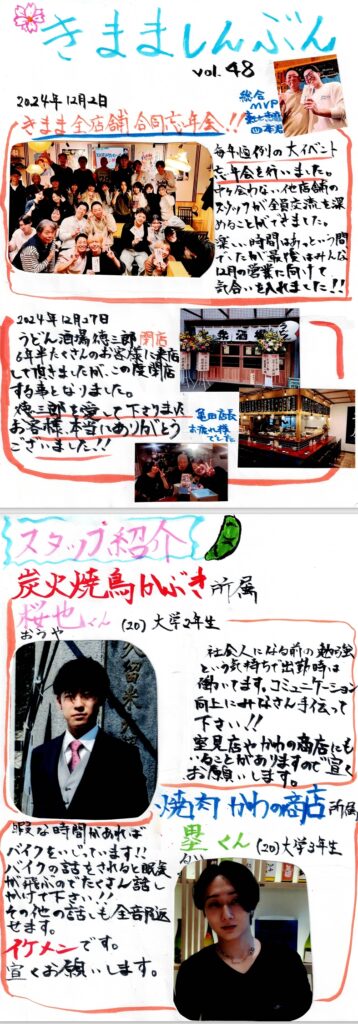 きまましんぶん
vol.48
2024年12月2日
きまま全店舗合同忘年会!!
総合
MVP
毎年恒例の大イベント
忘年会を行いました。
中々会わない他店舗の
スタッフが全員交流を深
めることができました。
楽しい時間はあっという間
でしたが最後はみんな
12月の営業に向けて
気合いを入れました!!
2024年12月27日
うどん酒場徳三郎閉店
6年半たくさんのお客様に来店
して頂きましたが、この度閉店
する事となりました。
徳三郎を愛して下さりました
お客様、本当にありがとう
ございました!!
亀田店長
お疲れ様
でした
スタッフ紹介
炭火焼鳥かぶき所属
桜也くん (20) 大学2年生
おうや
社会人になる前の勉強
という気持ちで出勤時は
働いてます。コミュニケーション
向上にみなさん手伝って
下さい!!
室見店やかわの商店にも
いることがありますので宜しく
お願いします。
焼肉かわの商店所属
塁くん (20)大学3年生
るい
暇な時間があれば
バイクをいじっています!!
バイクの話をされると眠気
が飛ぶのでたくさん話し
かけて下さい!!
その他の話しも全部返
せます。
イケメンです。
宜しくお願いします。